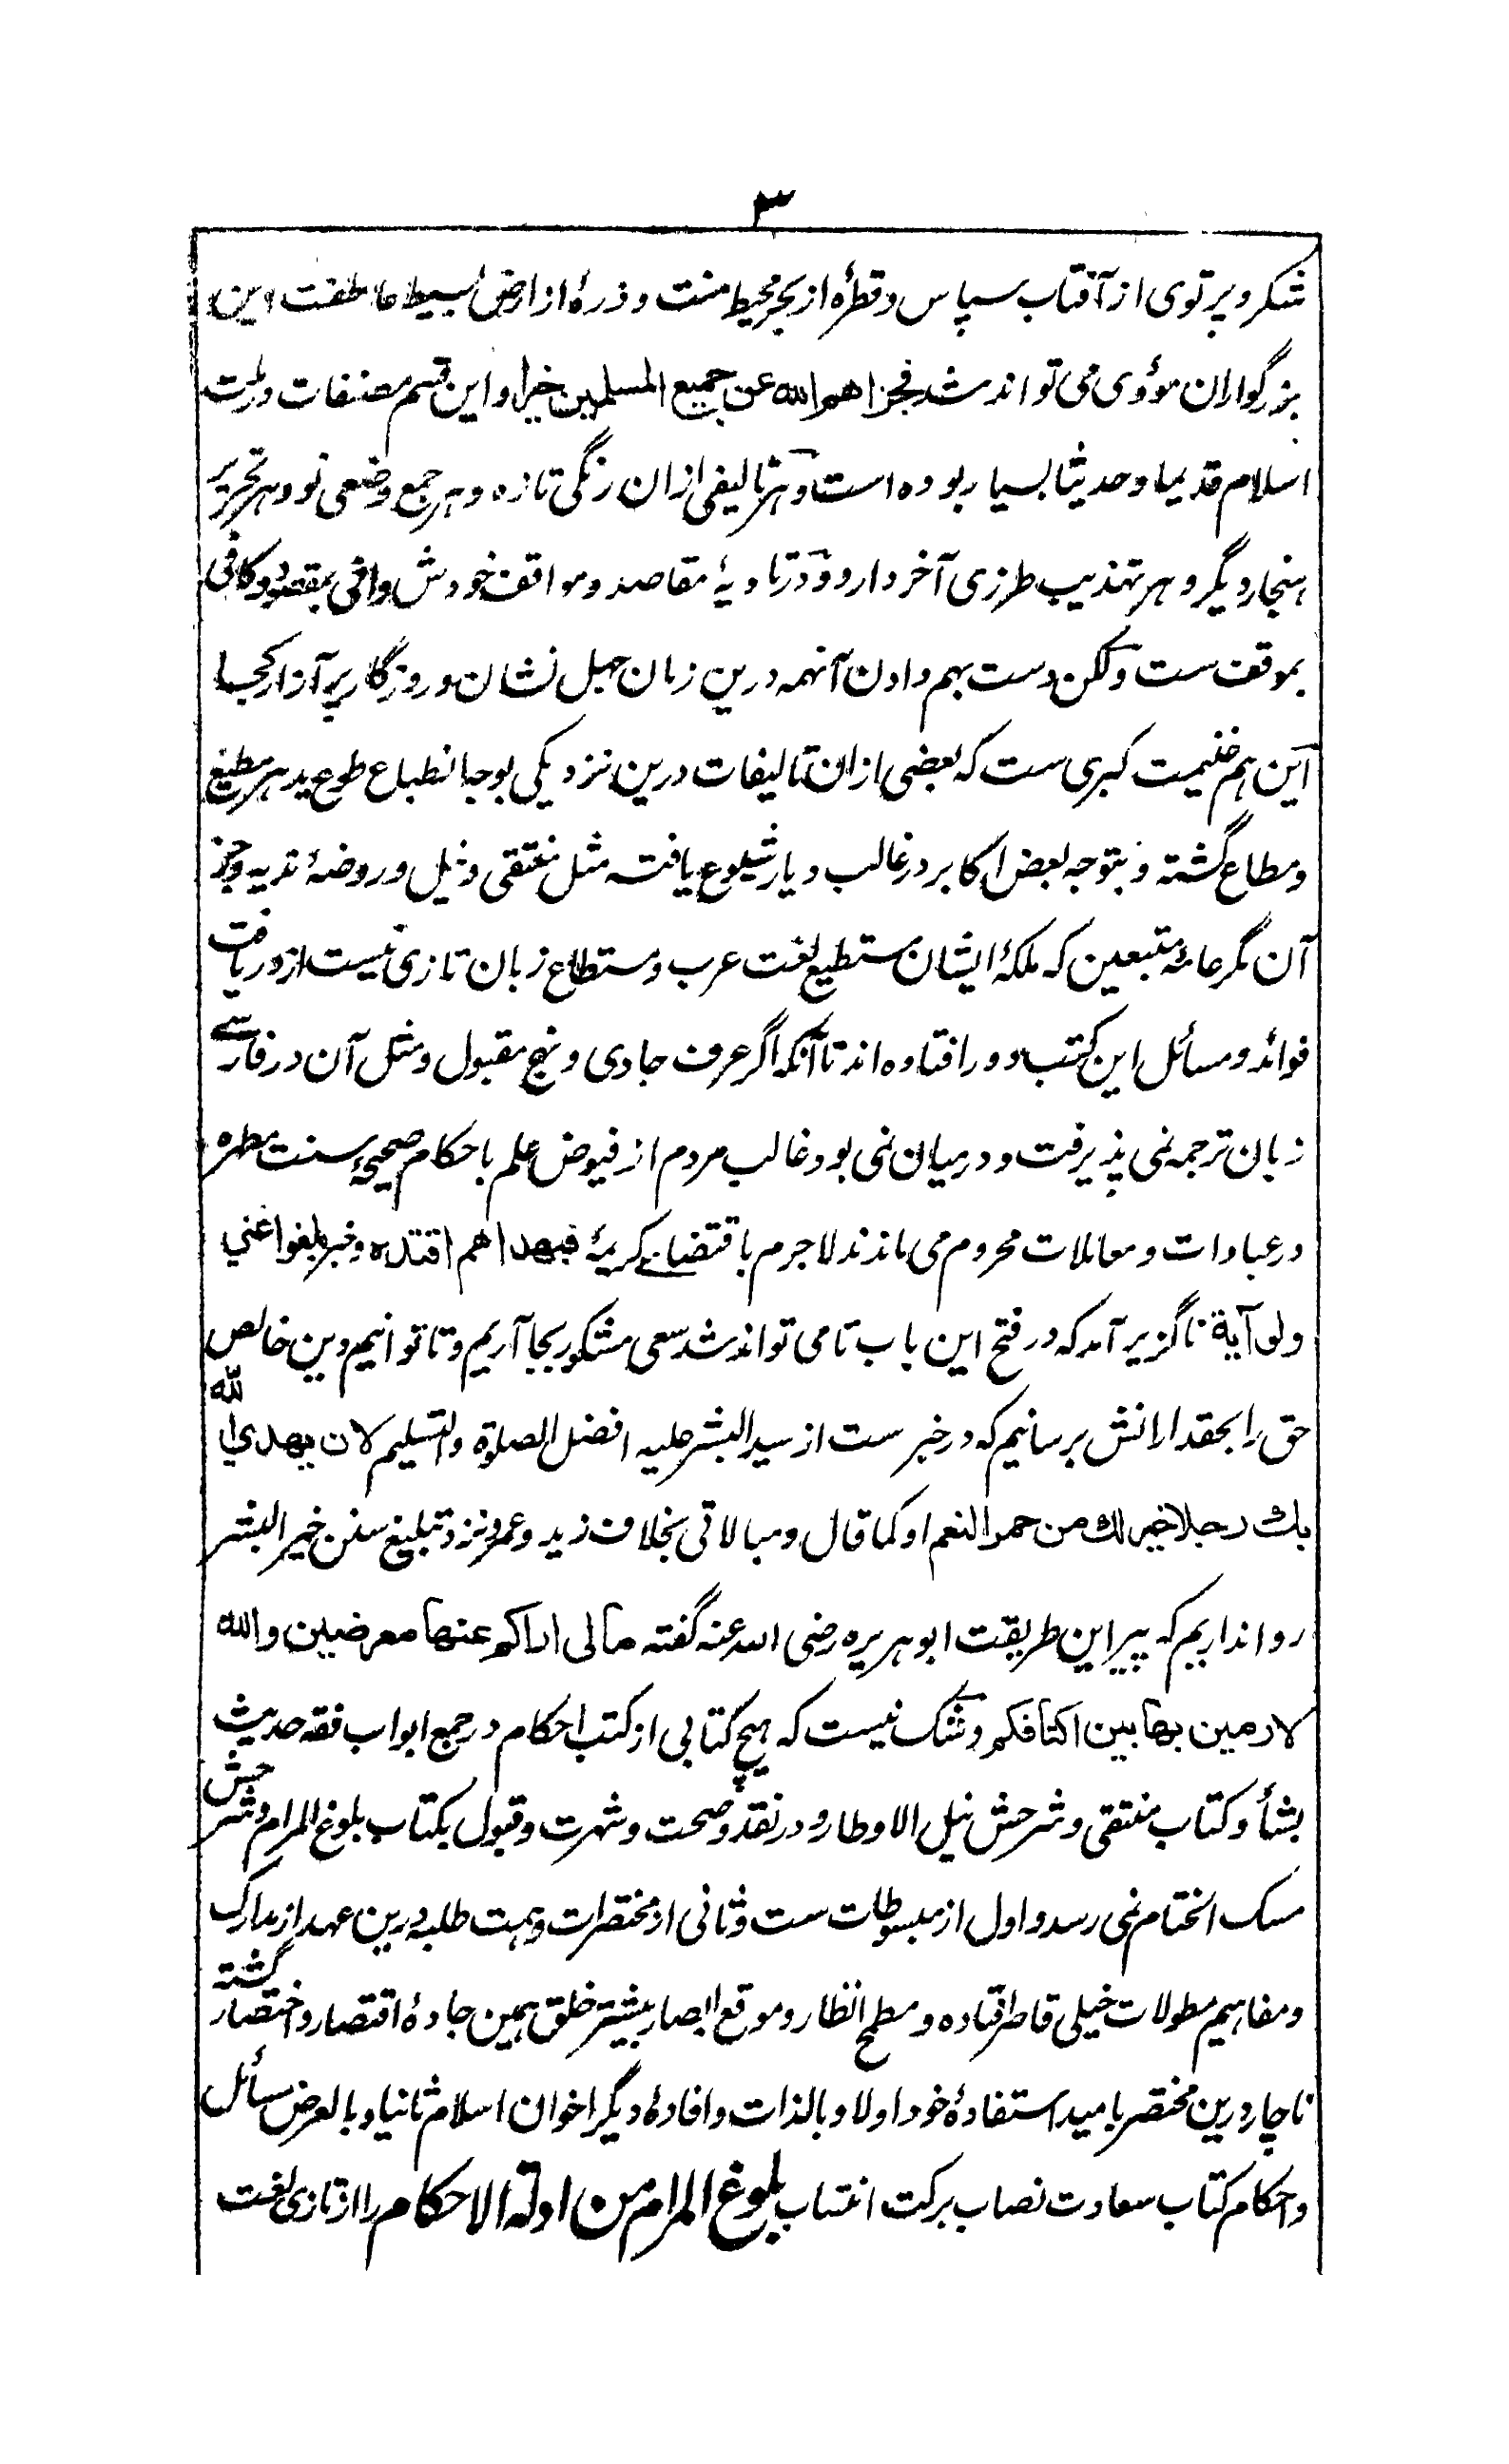 ۳
شکر و پرتوی از آفتاب سپاس و قطرهٔ از بحر محیط منت و ذرهٔ از ارض بسیط عاطفت این
بزرگواران مؤدی می تواند شد فجزاهم الله عن جمیع المسلمین خیرا و این قسم مصنفات در ملت
اسلام قدیما و حدیثا بسیار بوده است و هر تالیفی ازان رنگی تازه و هر جمع وضعی نو و هر تحریر
هنجار دیگر و هر تهذیب طرزی آخر دارد و در تادیهٔ مقاصد و مواقف خودش وافی بمقصود و کافی
بموقف ست ولکن دست بهم دادن آنهمه درین زمان جهل نشان و روزگار پر آزار کجا
این هم غنیمت کبری ست که بعضی ازان تالیفات درین نزدیکی بوجه انطباع طوع ید هر مطیع
و مطاع گشته و بتوجه بعض اکابر در غالب دیار شیوع یافته مثل منتقی و نیل و روضهٔ ندیه و جز
آن مگر عامهٔ متبعین که ملکهٔ ایشان مستطیع لغت عرب و مستطاع زبان تازی نیست از دریافت
فوائد و مسائل این کتب دور افتاده اند تا آنکه اگر عرف جادی و نهج مقبول و مثل آن در فارسی
زبان ترجمه نمی پذیرفت و در میان نمی بود غالب مردم از فیوض علم باحکام صحیحهٔ سنت مطهره
در عبادات و معاملات محروم می ماندند لاجرم باقتضای کریمهٔ فبهداهم اقتده و خبر بلغوا عني
ولو آیة ناگزیر آمد که در فتح این باب تا می تواند شد سعی مشکور بجا آریم و تا توانیم دین خالص
حق را بحقدارانش برسانیم که در خبر ست از سید البشر علیه افضل الصلوة و التسلیم لان یهدي الله
بك رجلا خیر لك من حمر النعم او کما قال و مبالاتی بخلاف زید و عمرو نزد تبلیغ سنن خیر البشر
روا نداریم که پیر این طریقت ابو هریره رضی الله عنه گفته مالی اراکم عنها معرضین والله
لارمین بها بین اکتافکم و شک نیست که هیچ کتابی از کتب احکام در جمع ابواب فقه حدیث
بشأو کتاب منتقی و شرحش نیل الاوطار و در نقد و صحت و شهرت و قبول بکتاب بلوغ المرام و شرحش
مسک الختام نمی رسد و اول از مبسوطات ست و ثانی از مختصرات و همت طلبه درین عهد از مدارک
و مفاهیم مطولات خیلی قاصر افتاده و مطمح انظار و موقع ابصار بیشتر خلق همین جادهٔ اقتصار و اختصار گشته
ناچار درین مختصر بامید استفادهٔ خود اولا و بالذات و افادهٔ دیگر اخوان اسلام ثانیا و بالعرض مسائل
و احکام کتاب سعادت نصاب برکت انتساب بلوغ المرام من ادلة الاحکام را از تازی لغت